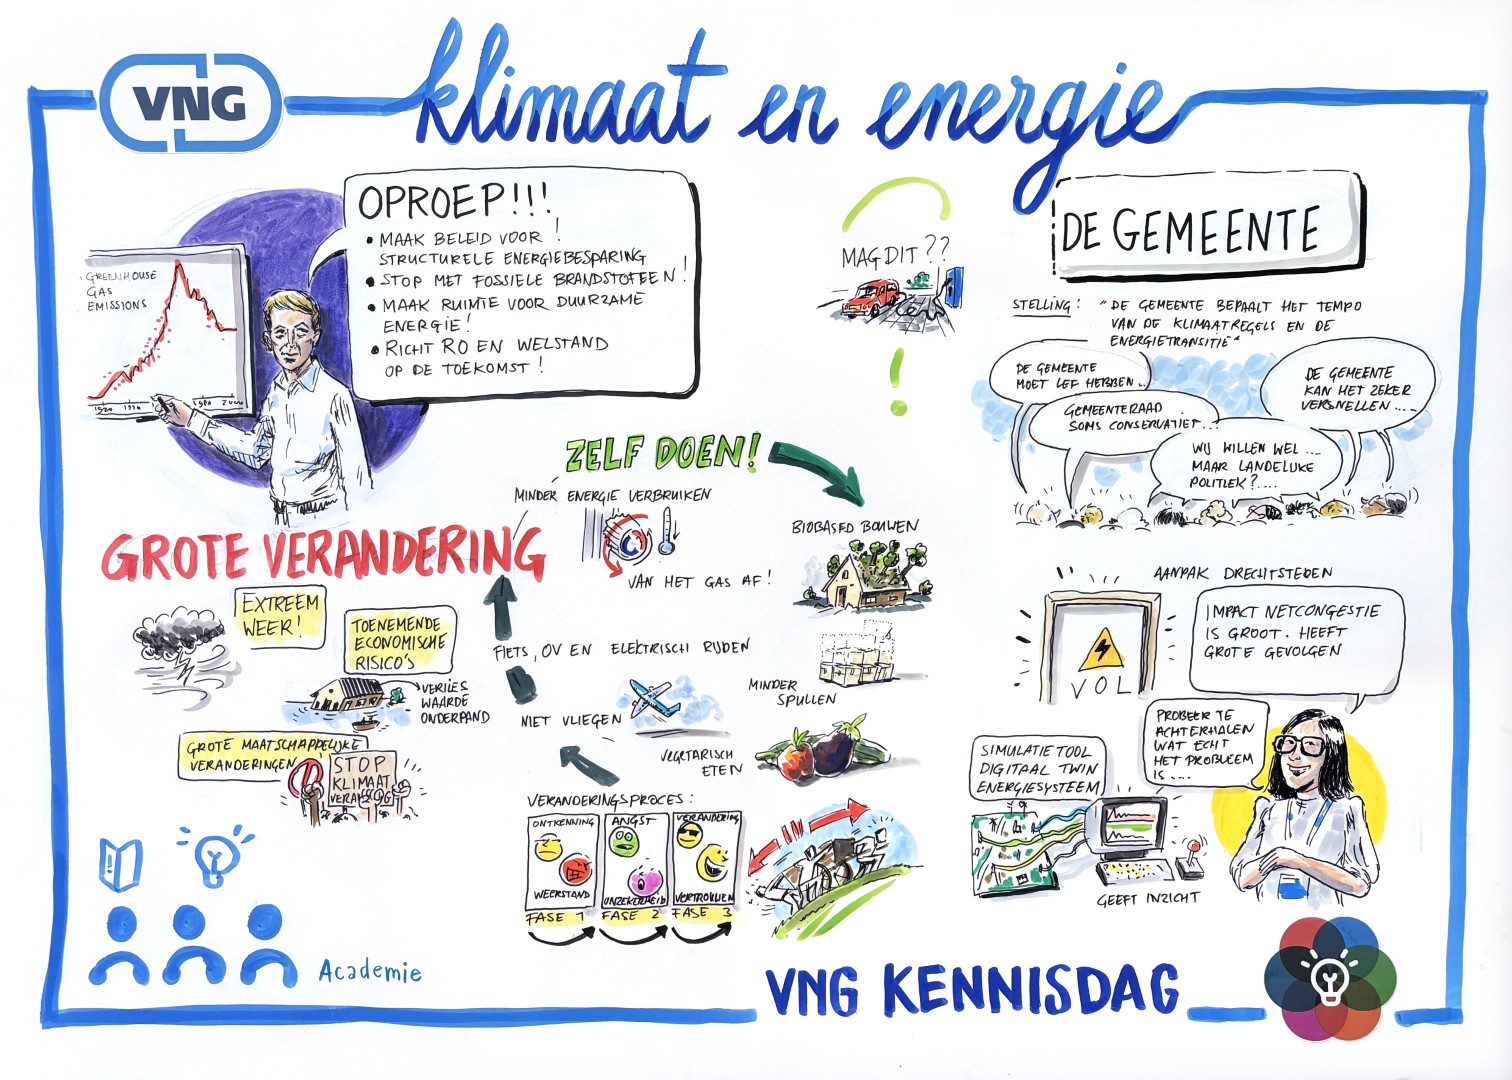 VNG
klimaat en energie
OPROEP!!!
• MAAK BELEID VOOR !
STRUCTURELE ENERGIEBESPARING
• STOP MET FOSSIELE BRANDSTOFFEN!
• MAAK RUIMTE VOOR DUURZAME
ENERGIE!
• RICHT RO EN WELSTAND
OP DE TOEKOMST!
GREENHOUSE
GAS
EMISSIONS
MAG DIT??
!
DE GEMEENTE
STELLING: "DE GEMEENTE BEPAALT HET TEMPO
VAN DE KLIMAATREGELS EN DE
ENERGIETRANSITIE"
DE GEMEENTE
MOET LEF HEBBEN...
GEMEENTERAAD
SOMS CONSERVATIEF...?
WIJ WILLEN WEL ....
MAAR LANDELIJKE
POLITIEK?....
DE GEMEENTE
KAN HET ZEKER
VERSNELLEN....
ZELF DOEN!
MINDER ENERGIE VERBRUIKEN
VAN HET GAS AF!
FIETS, OV EN ELEKTRISCH RIJDEN
NIET VLIEGEN
BIOBASED BOUWEN
MINDER
SPULLEN
VEGETARISCH
ETEN
GROTE VERANDERING
EXTREEM
WEER!
TOENEMENDE
ECONOMISCHE
RISICO'S
VERLIES
WAARDE
ONDERPAND
GROTE MAATSCHAPPELIJKE
VERANDERINGEN
STOP
KLIMAAT
VERANDERINGSPROCES:
ONTKENNING
WEERSTAND
FASE 1
ANGST
ONZEKERHEID
FASE 2
VERANDERING
VERTROUWEN
FASE 3
AANPAK DRECHTSTEDEN
VOL
IMPACT NETCONGESTIE
IS GROOT. HEEFT
GROTE GEVOLGEN
PROBEER TE
ACHTERHALEN
WAT ECHT
HET PROBLEEM
IS....
SIMULATIE TOOL
DIGITAAL TWIN
ENERGIESYSTEEM
GEEFT INZICHT
Academie
VNG KENNISDAG